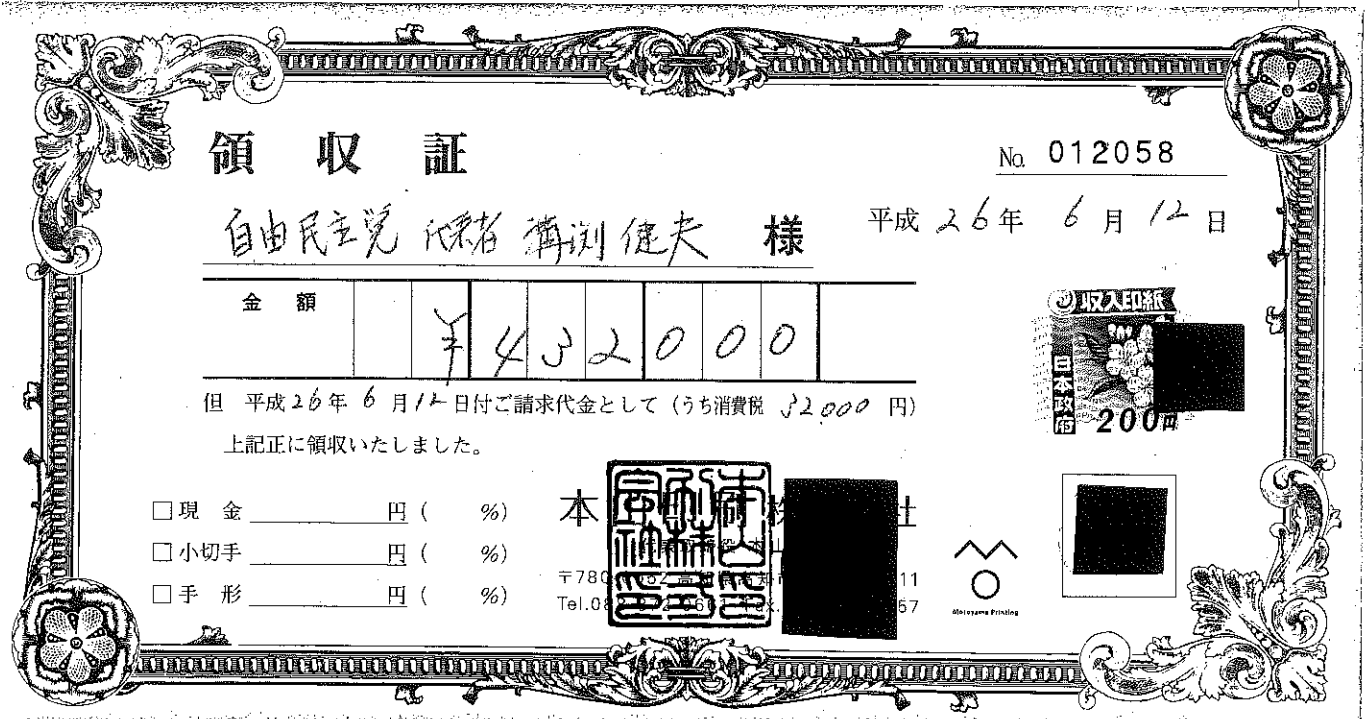 領収証
No. 012058
自由民主党 代表者 溝渕健夫 様
平成 26年 6月 12日
金額 ¥432000
収入印紙
日本政府
200円
但 平成26年6月12日付ご請求代金として (うち消費税 32000 円)
上記正に領収いたしました。
□現 金 円 ( %)
□小切手 円 ( %)
□手 形 円 ( %)
本
社
〒780
11
Tel.08
57
Motoyama Printing